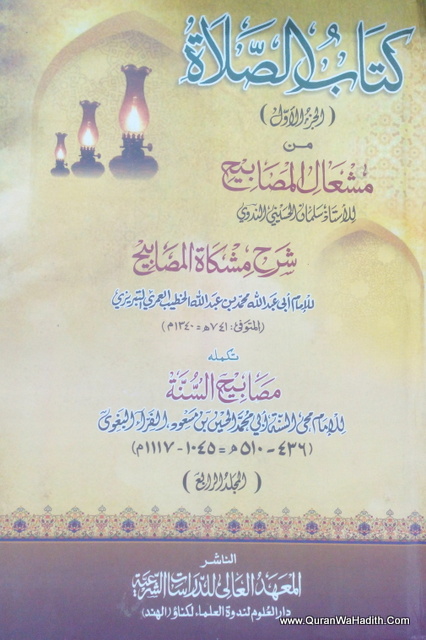 كتاب الصلاة
(الجزء الأول)
من
مشعال المصابيح
للأستاذ سلمان الحسيني الندوي
شرح مشكاة المصابيح
للإمام أبي عبد الله محمد بن عبد الله الخطيب العمري التبريزي
(المتوفى: ٧٤١ﻫ = ١٣٤٠م)
تكمله
مصابيح السنة
للإمام محي السنة أبي محمد الحسين بن مسعود الفراء البغوي
(٤٣٦-٥١٠ﻫ = ١٠٤٥-١١١٧م)
(المجلد الرابع)
الناشر
المعهد العالي للدراسات الشرعية
دار العلوم لندوة العلماء لكناؤ (الهند)
www.QuranWaHadith.Com